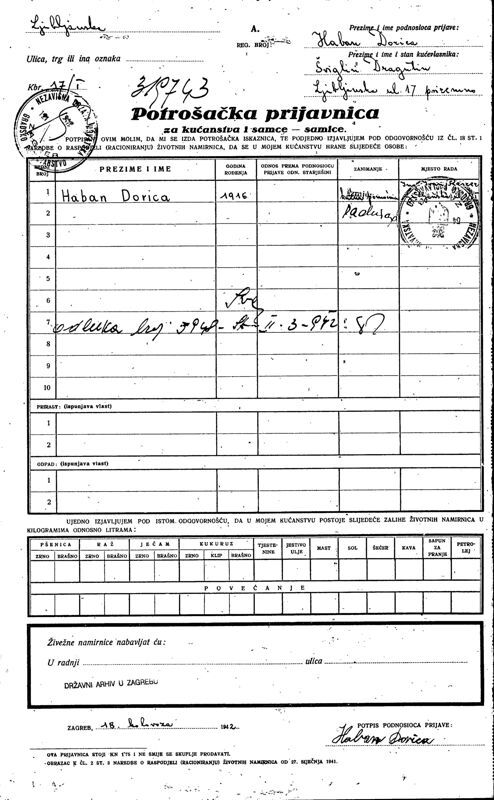 Ljubljanska
A.
Prezime i ime podnosioca prijave:
REG. BROJ
Haban Dorica
Ulica, trg ili ina oznaka
Prezime i ime i stan kućevlasnika:
Dragutin
Kbr. 17/I
Ljubljanska ul 17 prizemno
319743
Potrošačka prijavnica
za kućanstva i samce — samice.
POTPISANI OVIM MOLIM, DA MI SE IZDA POTROŠAČKA ISKAZNICA, TE PODJEDNO IZJAVLJUJEM POD ODGOVORNOŠĆU IZ ČL. 18 ST. 1
NAREDBE O RASPODJELI (RACIONIRANJU) ŽIVOTNIH NAMIRNICA, DA SE U MOJEM KUĆANSTVU HRANE SLIJEDEĆE OSOBE:
BROJ PREZIME I IME GODINA ROĐENJA ODNOS PREMA PODNOSIOCU PRIJAVE ODN. STARJEŠINI ZANIMANJE MJESTO RADA
1 Haban Dorica 1916
2
3
4
5
6
7 odluka broj II-3-942
8
9
10
PRIRAST: (ispunjava vlast)
1
2
OTPAD: (ispunjava vlast)
1
2
UJEDNO IZJAVLJUJEM POD ISTOM ODGOVORNOŠĆU, DA U MOJEM KUĆANSTVU POSTOJE SLIJEDEĆE ZALIHE ŽIVOTNIH NAMIRNICA U
KILOGRAMIMA ODNOSNO LITRAMA:
PŠENICA RAŽ JEČAM KUKURUZ TJESTENINE JESTIVO ULJE MAST SOL ŠEĆER KAVA SAPUN ZA PRANJE PETROLEJ
ZRNO BRAŠNO ZRNO BRAŠNO ZRNO BRAŠNO ZRNO KLIP BRAŠNO
POVEĆANJE
Živežne namirnice nabavljat ću:
U radnji ulica
DRŽAVNI ARHIV U ZAGREBU
ZAGREB, 18. kolovoza 1942
POTPIS PODNOSIOCA PRIJAVE:
Haban Dorica
OVA PRIJAVNICA STOJI KN 1'75 I NE SMIJE SE SKUPLJE PRODAVATI.
OBRAZAC K ČL. 2 ST. 3 NAREDBE O RASPODJELI (RACIONIRANJU) ŽIVOTNIH NAMIRNICA OD 27. SIJEČNJA 1941.